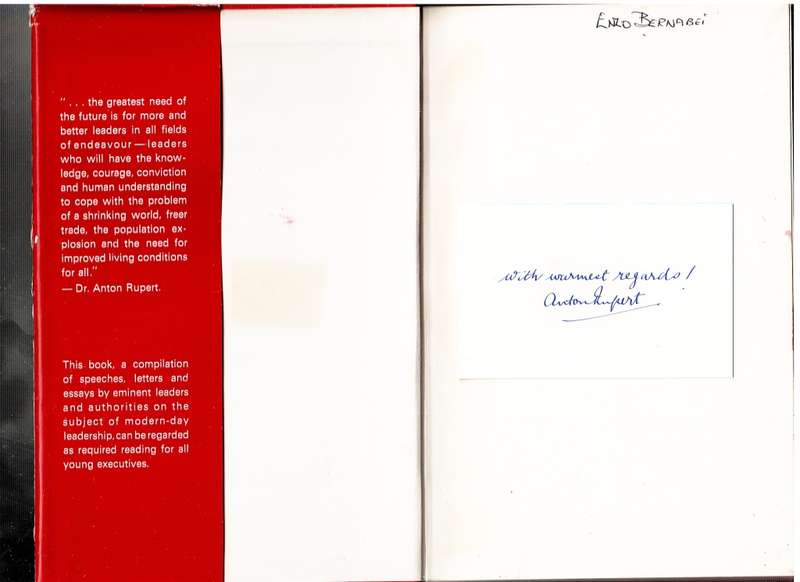 " . . . the greatest need of
the future is for more and
better leaders in all fields
of endeavour — leaders
who will have the know-
ledge, courage, conviction
and human understanding
to cope with the problem
of a shrinking world, freer
trade, the population ex-
plosion and the need for
improved living conditions
for all."
— Dr. Anton Rupert.
This book, a compilation
of speeches, letters and
essays by eminent leaders
and authorities on the
subject of modern-day
leadership, can be regarded
as required reading for all
young executives.
ENZO BERNABEi
With warmest regards!
Anton Rupert.